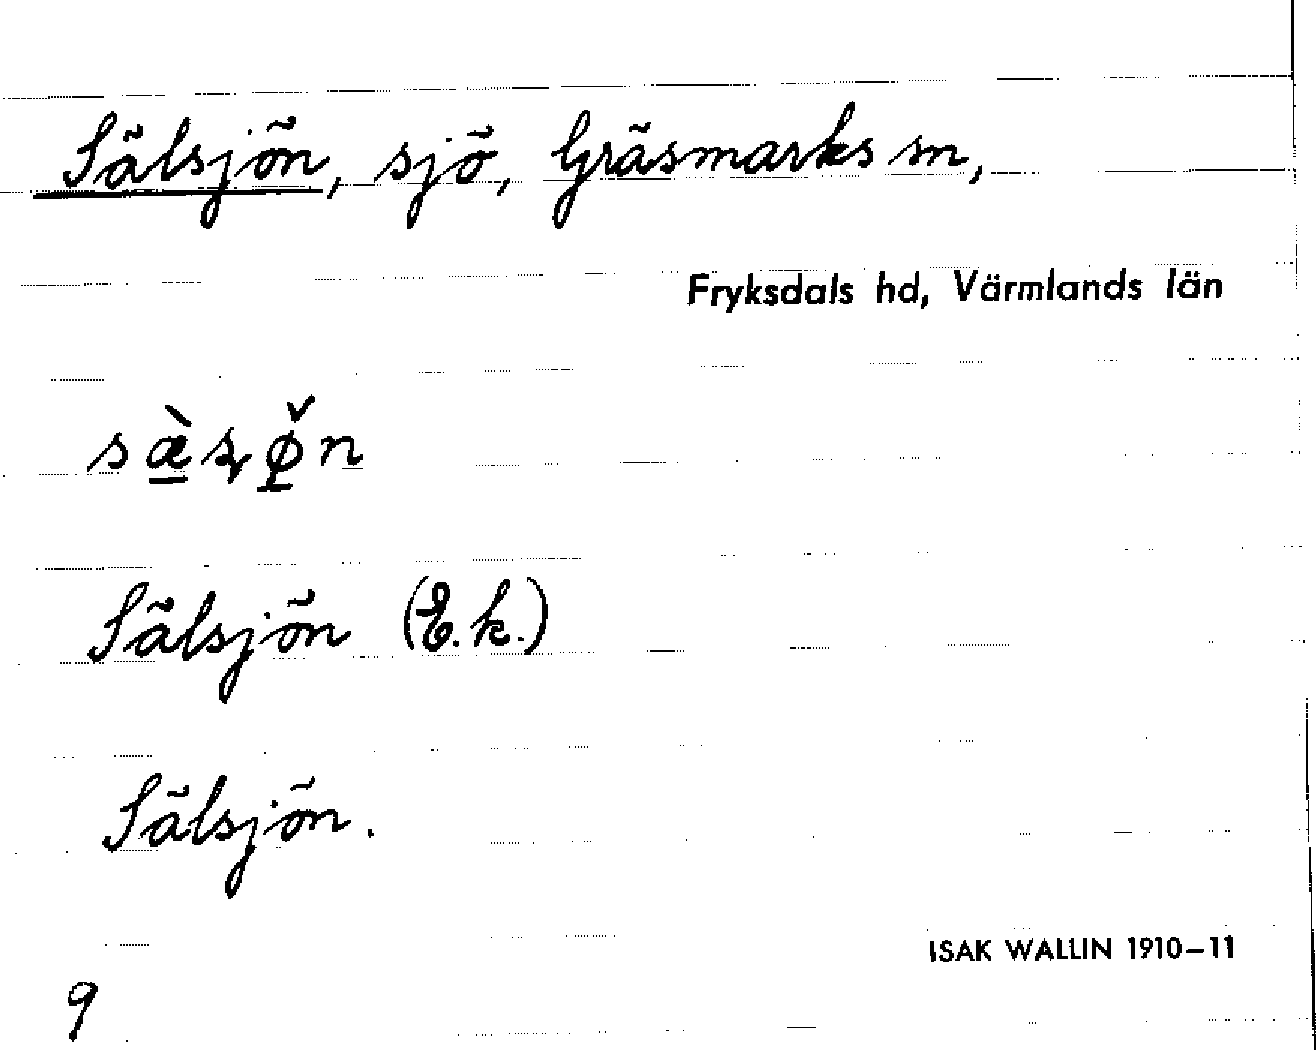 Sälsjön, sjö, Gräsmarks sn,
Fryksdals hd, Värmlands län
sæ̱̀ʂø̱̌n
Sälsjön (E.k.)
Sälsjön.
ISAK WALLIN 1910–11
9